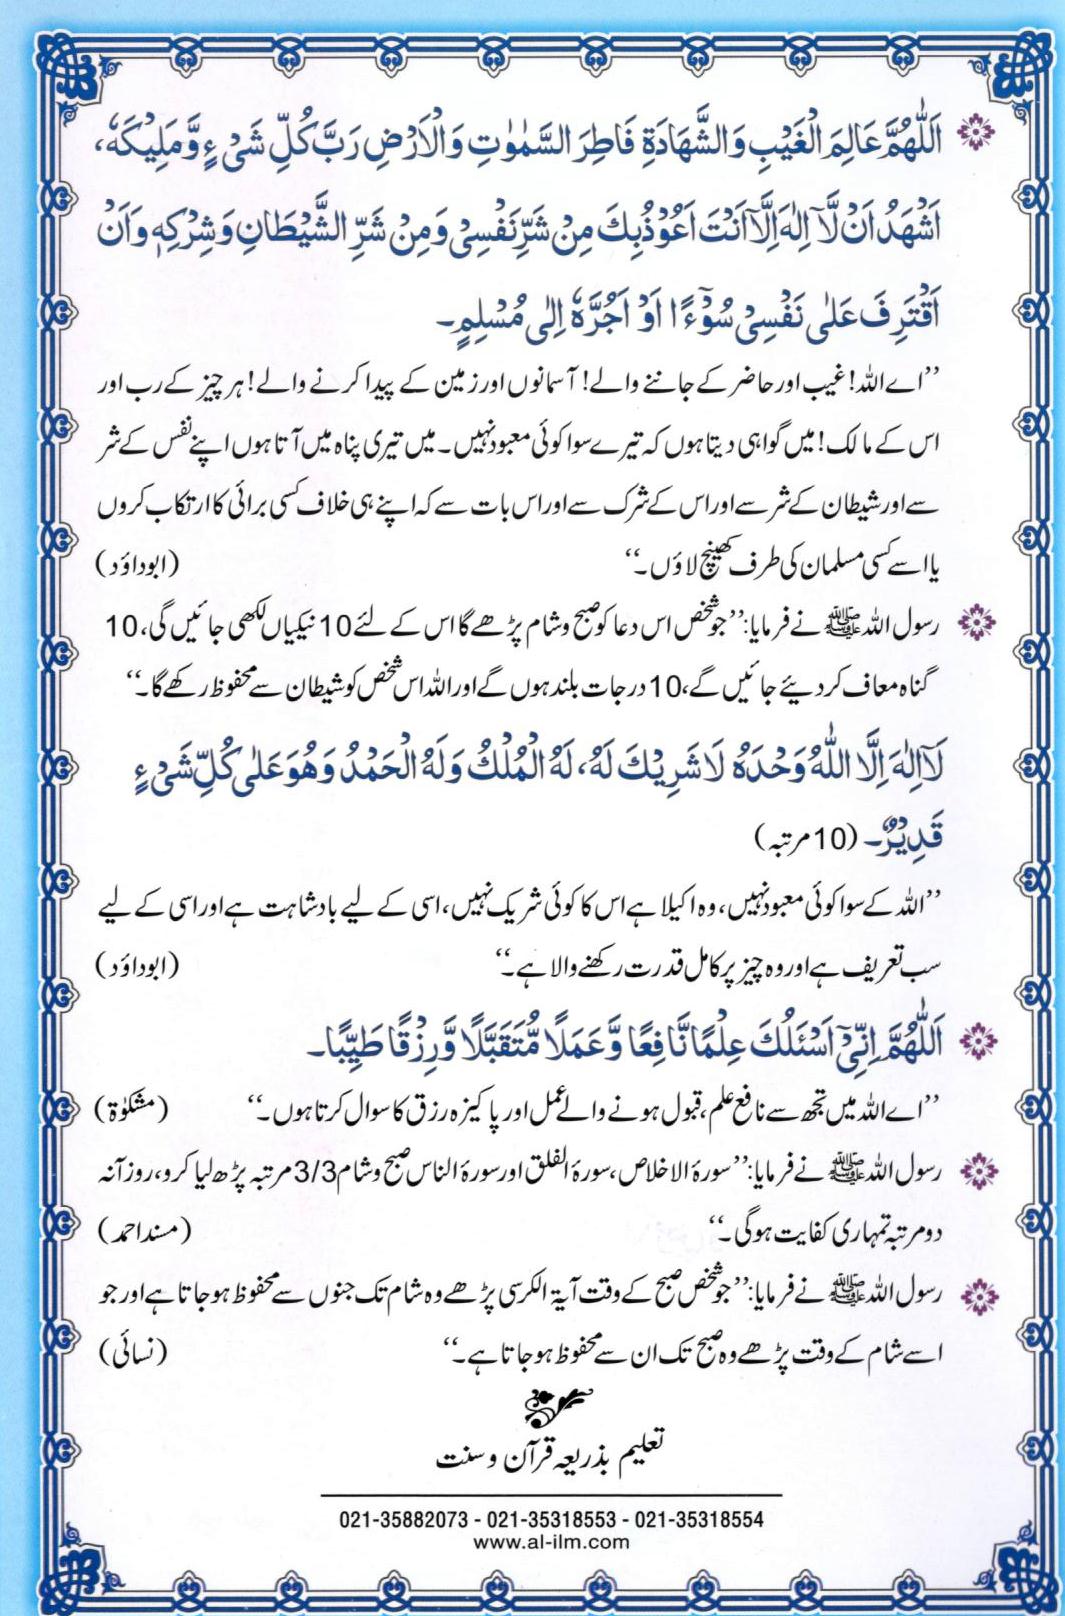 اَللّٰهُمَّ عَالِمَ الْغَيْبِ وَالشَّهَادَةِ فَاطِرَ السَّمٰوٰتِ وَالْاَرْضِ رَبَّ كُلِّ شَیْ ءٍ وَّمَلِيْكَهٗ،
اَشْهَدُ اَنْ لَّآ اِلٰهَ اِلَّآ اَنْتَ اَعُوْذُ بِكَ مِنْ شَرِّ نَفْسِیْ وَمِنْ شَرِّ الشَّيْطَانِ وَشِرْكِهٖ وَاَنْ
اَقْتَرِفَ عَلٰى نَفْسِیْ سُوْٓءًا اَوْ اَجُرَّهٗ اِلٰى مُسْلِمٍ۔
’’اے اللہ! غیب اور حاضر کے جاننے والے! آسمانوں اور زمین کے پیدا کرنے والے! ہر چیز کے رب اور
اس کے مالک! میں گواہی دیتا ہوں کہ تیرے سوا کوئی معبود نہیں۔ میں تیری پناہ میں آتا ہوں اپنے نفس کے شر
سے اور شیطان کے شر سے اور اس کے شرک سے اور اس بات سے کہ اپنے ہی خلاف کسی برائی کا ارتکاب کروں
یا اسے کسی مسلمان کی طرف کھینچ لاؤں۔‘‘ (ابوداؤد)
رسول اللہ ﷺ نے فرمایا: ’’جو شخص اس دعا کو صبح و شام پڑھے گا اس کے لئے 10 نیکیاں لکھی جائیں گی، 10
گناہ معاف کردیئے جائیں گے، 10 درجات بلند ہوں گے اور اللہ اس شخص کو شیطان سے محفوظ رکھے گا۔‘‘
لَآ اِلٰهَ اِلَّا اللّٰهُ وَحْدَهٗ لَا شَرِيْكَ لَهٗ، لَهُ الْمُلْكُ وَلَهُ الْحَمْدُ وَهُوَ عَلٰى كُلِّ شَیْ ءٍ
قَدِيْرٌ۔ (10 مرتبہ)
’’اللہ کے سوا کوئی معبود نہیں، وہ اکیلا ہے اس کا کوئی شریک نہیں، اسی کے لیے بادشاہت ہے اور اسی کے لیے
سب تعریف ہے اور وہ چیز پر کامل قدرت رکھنے والا ہے۔‘‘ (ابوداؤد)
اَللّٰهُمَّ اِنِّیْٓ اَسْئَلُكَ عِلْمًا نَّافِعًا وَّعَمَلًا مُّتَقَبَّلًا وَّرِزْقًا طَيِّبًا۔
’’اے اللہ میں تجھ سے نافع علم، قبول ہونے والے عمل اور پاکیزہ رزق کا سوال کرتا ہوں۔‘‘ (مشکوٰۃ)
رسول اللہ ﷺ نے فرمایا: ’’سورۃ الاخلاص، سورۃ الفلق اور سورۃ الناس صبح و شام 3/3 مرتبہ پڑھ لیا کرو، روزآنہ
دو مرتبہ تمہاری کفایت ہوگی۔‘‘ (مسند احمد)
رسول اللہ ﷺ نے فرمایا: ’’جو شخص صبح کے وقت آیۃ الکرسی پڑھے وہ شام تک جنوں سے محفوظ ہوجاتا ہے اور جو
اسے شام کے وقت پڑھے وہ صبح تک ان سے محفوظ ہوجاتا ہے۔‘‘ (نسائی)
تعلیم بذریعہ قرآن و سنت
021-35882073 - 021-35318553 - 021-35318554
www.al-ilm.com